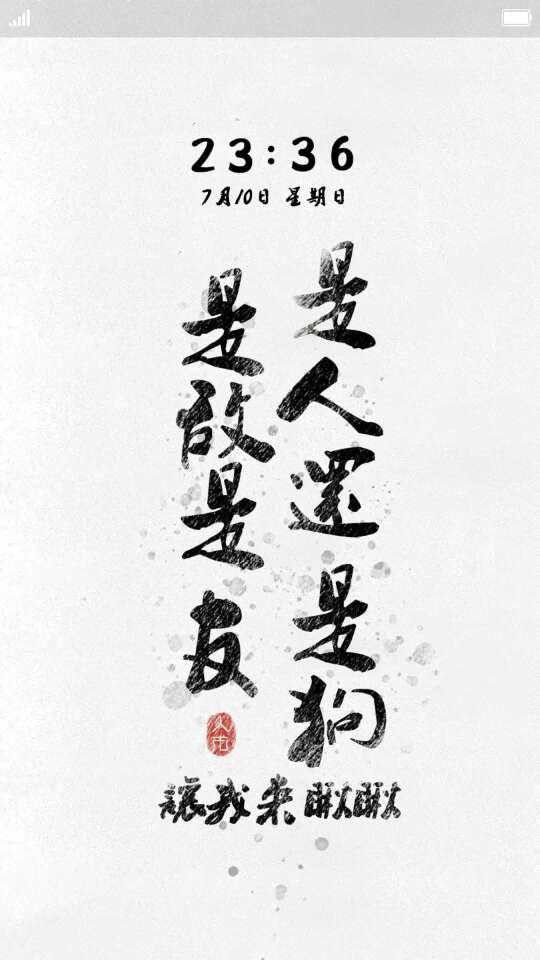 23:36
7月10日 星期日
是人還是狗
是敌是友
讓我来瞅瞅